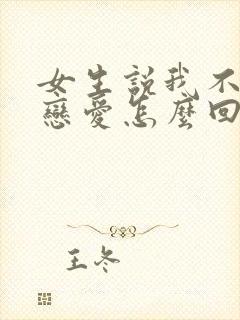 女生說我不
戀愛怎麼回
王冬